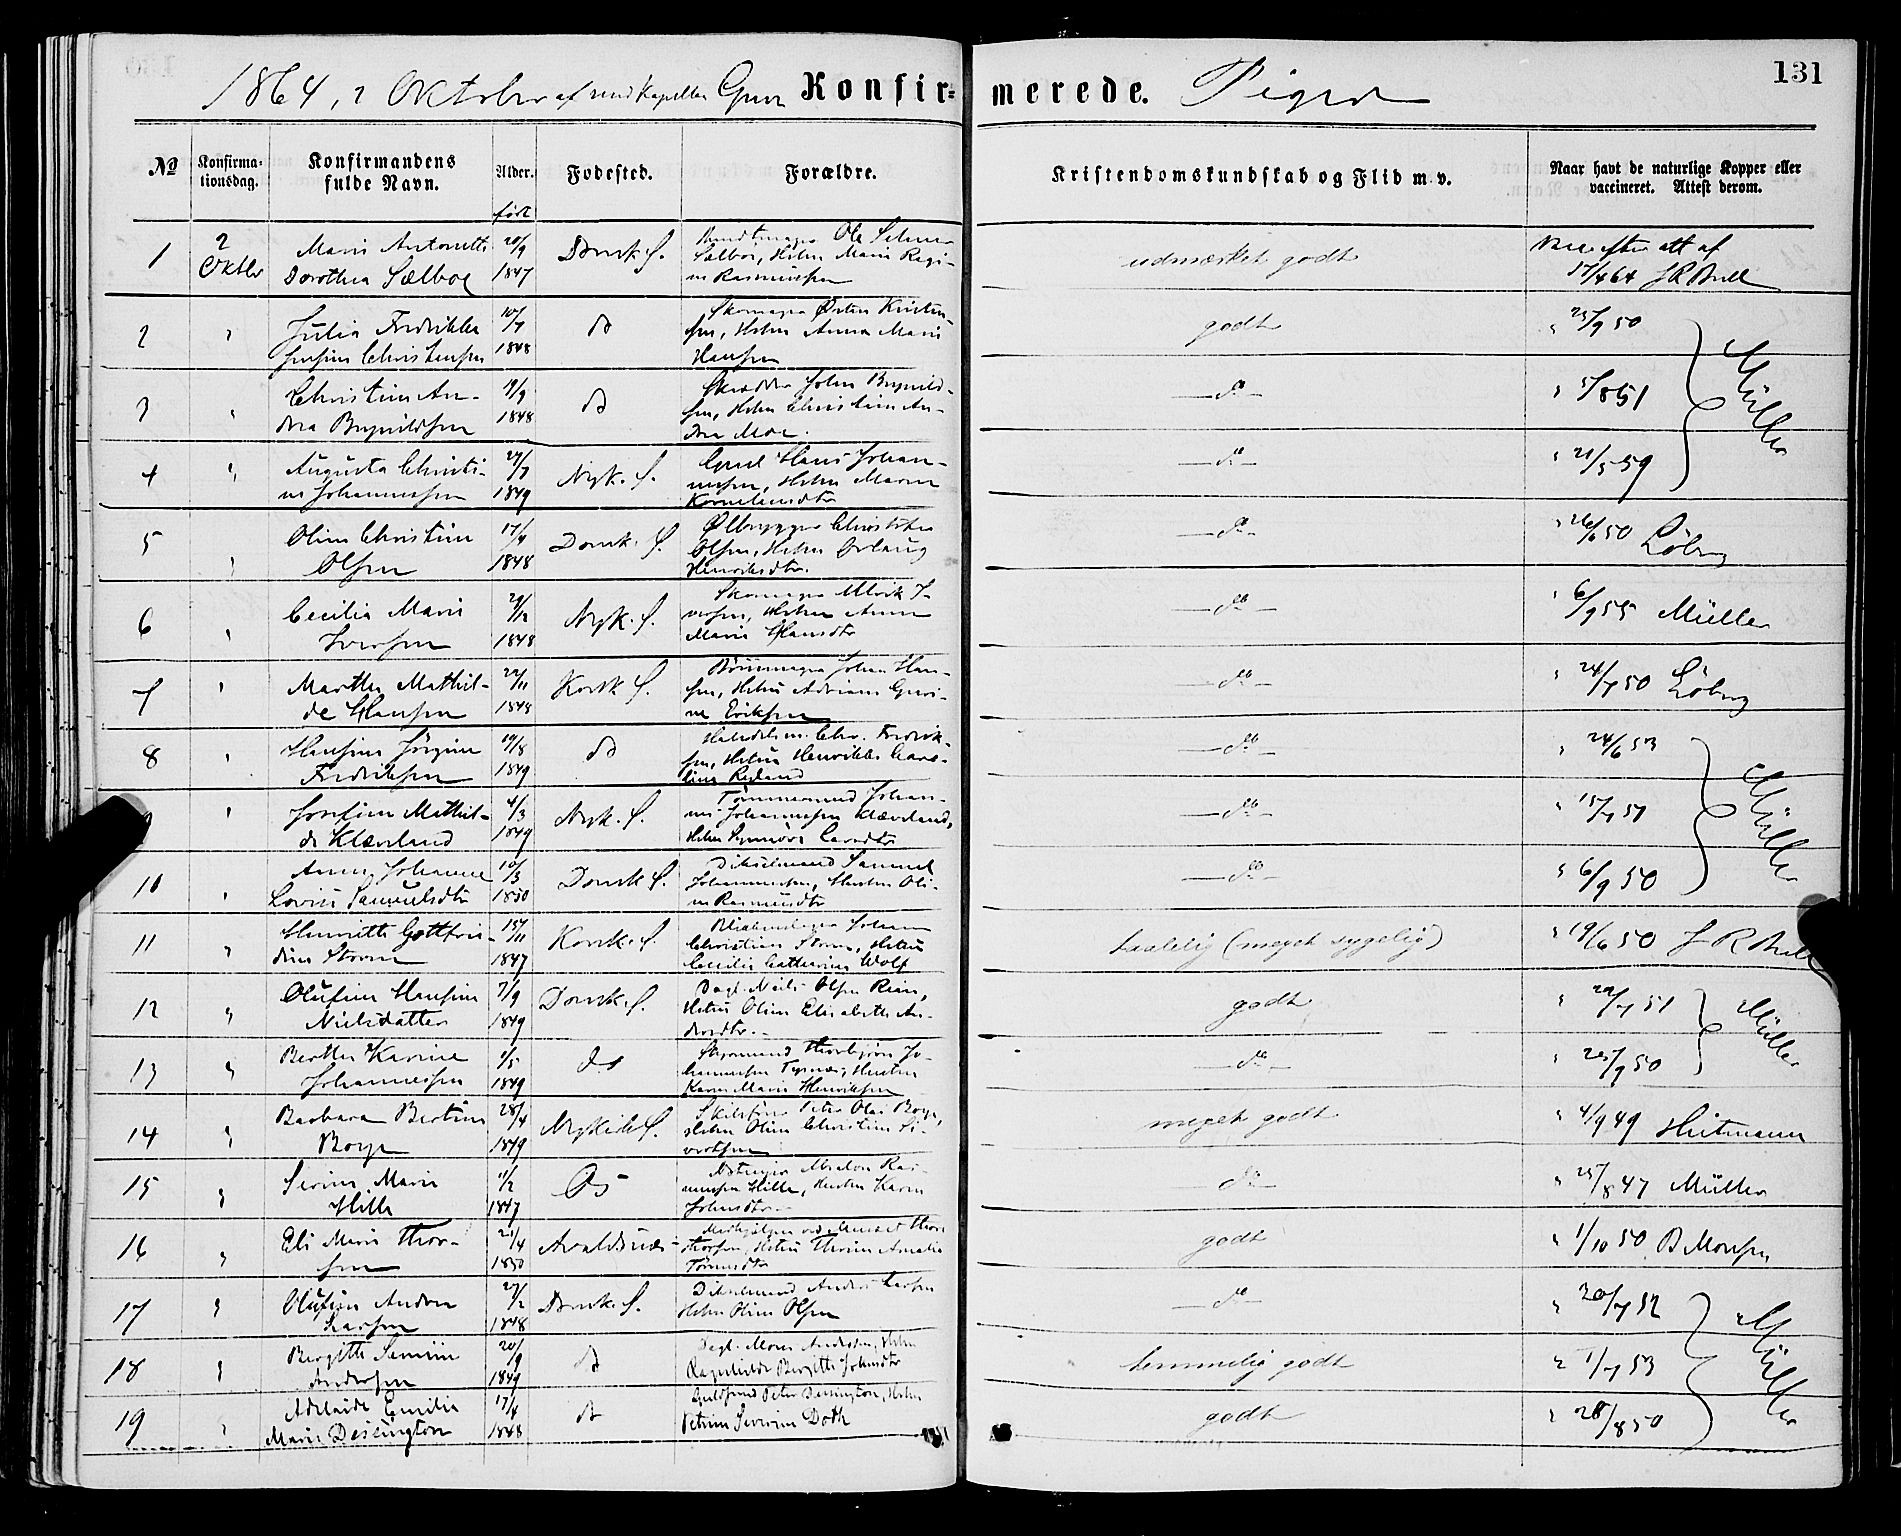 1864, 2 Oktober af res Kapellan Grun Konfirmerede. Piger 131
No Konfirmationsdag. Konfirmandens fulde Navn. Alder. Fødested. Forældre. Kristendomskundskab og Flid m. v. Naar havt de naturlige Kopper eller vaccineret. Attest derom.
født
1 2 Oktbr Marie Antonette Dorothea Sælboe 20/9 1847 Domk. S. Ole Sælboe, Hstru Marie Regine Rasmussen udmærket godt Vacc. efter att af 17/4 64 J R Bull
2 " Julia Fredrikke Jensine Christensen 10/7 1848 do Skomager Østen Kristensen, Hstru Anna Marie Hansen godt " 25/9 50
3 " Christine Andrea Brynildsen 19/9 1848 do Skrædder John Brynildsen, Hstru Christine Andrea Moe. do " 5/8 51 Müller
4 " Augusta Christine Johannessen 27/7 1849 Nyk. S. Hans Johannessen, Hstru Maren Korneliusdtr do " 21/5 59
5 " Oline Christine Olsen 17/4 1848 Domk. S. Ølbrygger Christofer Olsen, Hstru Henriksdtr. do " 26/6 50 Löberg
6 " Cecilia Marie Iversen 29/12 1848 Nyk. S. Skomager Ulrik Iversen, Hstru Anne Marie Hansdtr do " 6/9 55 Müller
7 " Marthe Mathilde Hansen 22/11 1848 Korsk S. Johan Hansen, Hstru Adriane Gurine Eriksen do " 24/7 50 Löberg
8 " Hansine Jørgine Fredriksen 19/8 1849 do Handelsm. Chr. Fredriksen, Hstru Henrikke Caroline Ryland do " 24/6 53
9 " Josefine Mathilde Klæveland 4/3 1849 Nyk. S. Tømmermand Johannes Johannessen Klævland, Hstru Synnøve Larsdtr do " 15/7 51 Müller
10 " Anne Johanne Lovise Samuelsdtr 10/3 1850 Domk S. Dikselmand Samuel Johannessen, Hustru Oline Rasmusdtr do " 6/9 50
11 " Henriette Gottfridine Storm 15/11 1847 Korsk. S. Blikkenslager Johan Christian Storm, Hstru Cecilie Catharine Wolf taalelig (meget sygelig) " 19/6 50 J R Bull
12 " Olufine Hansine Nielsdatter 7/9 1849 Domk. S. Dagl. Niels Olsen, Hstru Oline Elisabeth Andersdtr. godt " 22/7 51 Müller
13 " Berthe Karine Johannessen 1/5 1849 do Thorbjørn Johannessen, Hustru Karen Marie Henriksen do " 25/9 50
14 " Barbara Bertine Borge 28/4 1849 Nykirk S. Peter Olai Borge, Hstru Oline Christine Sivertsen meget godt " 4/9 49 Heitmann
15 " Sivine Marie Hille 11/2 1847 Os Rasmussen Hille, Hustru Karen Johnsdtr do " 25/8 47 Müller
16 " Eli Marie Thorsen 21/4 1850 Avaldsnæs Thorsen, Hstru Thrine Amalie godt " 1/10 50 B Monsen
17 " Olufine Andrea Larsen 27/2 1848 Domk. S. Dikselmand Anders Larsen Hstru Oline Olsen do " 20/7 52
18 " Bergitte Severine Andersen 20/9 1849 do Dagl. Mons Andersen, Hstru Ragnhilde Bergitte Johnsdtr temmelig godt " 1/7 53 Müller
19 " Adelaide Emilie Marie Desington 17/4 1848 do Guldsmed Peter Desington, Hstru Petrine Severine Doth godt " 28/8 50